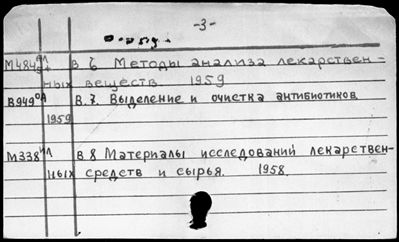 -3-
М484 В 6 Методы анализа лекарствен-
ных веществ 1959
В949 В.7. Выделение и очистка антибиотиков
1959
М338 В 8 Материалы исследований лекарствен-
ных средств и сырья. 1958.